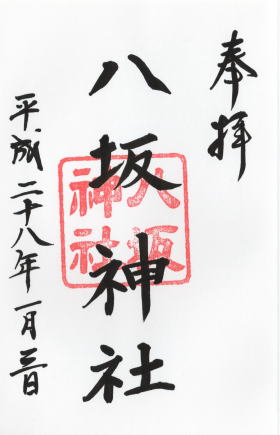 奉拝
八坂神社
八坂神社
平成二十八年一月三日